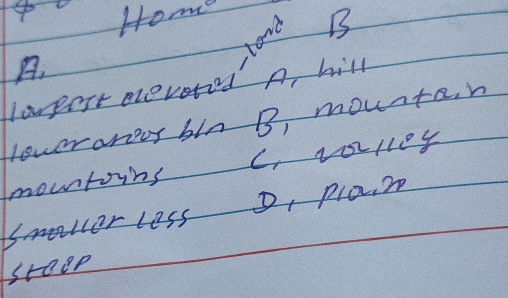 Hom
B
A.
largest elevated land A, hill
lower areas b/n B, mountain
mountains C, valley
smaller less D, plain
steep